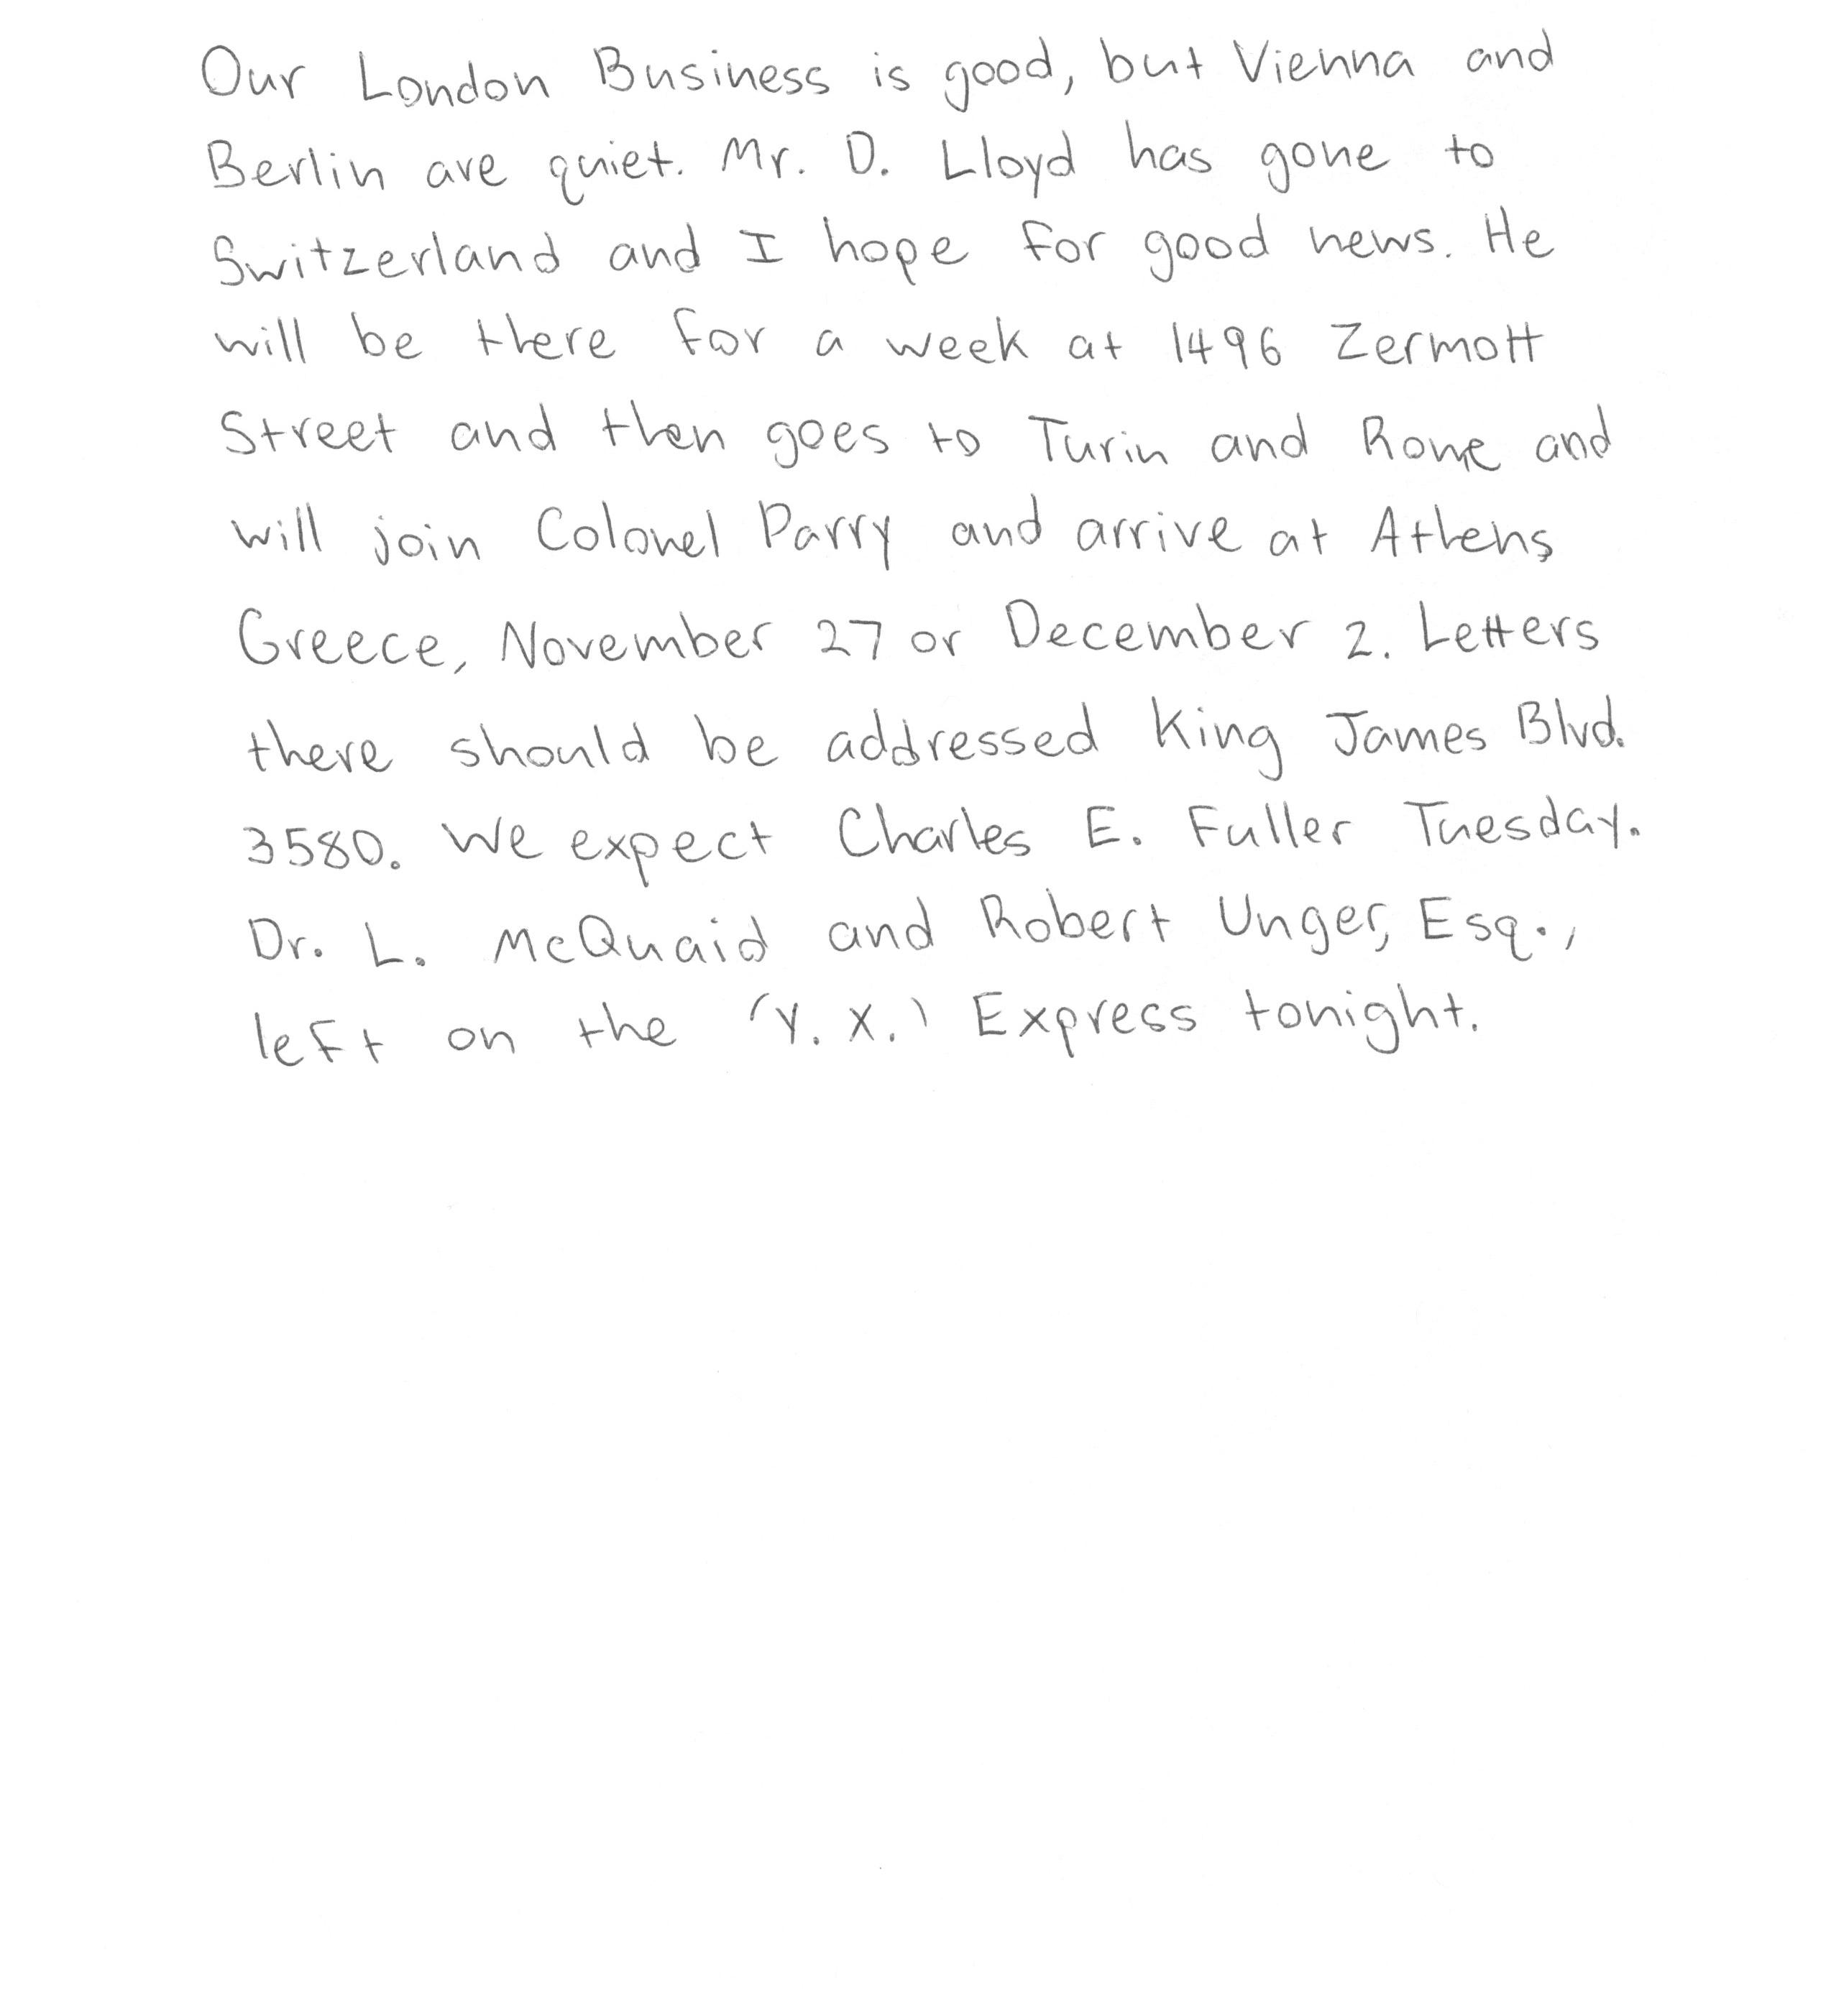 Our London Business is good, but Vienna and
Berlin are quiet. Mr. D. Lloyd has gone to
Switzerland and I hope for good news. He
will be there for a week at 1496 Zermott
Street and then goes to Turin and Rome and
will join Colonel Parry and arrive at Athens
Greece, November 27 or December 2. Letters
there should be addressed King James Blvd.
3580. We expect Charles E. Fuller Tuesday.
Dr. L. McQuaid and Robert Unger, Esq.,
left on the (Y. X.) Express tonight.